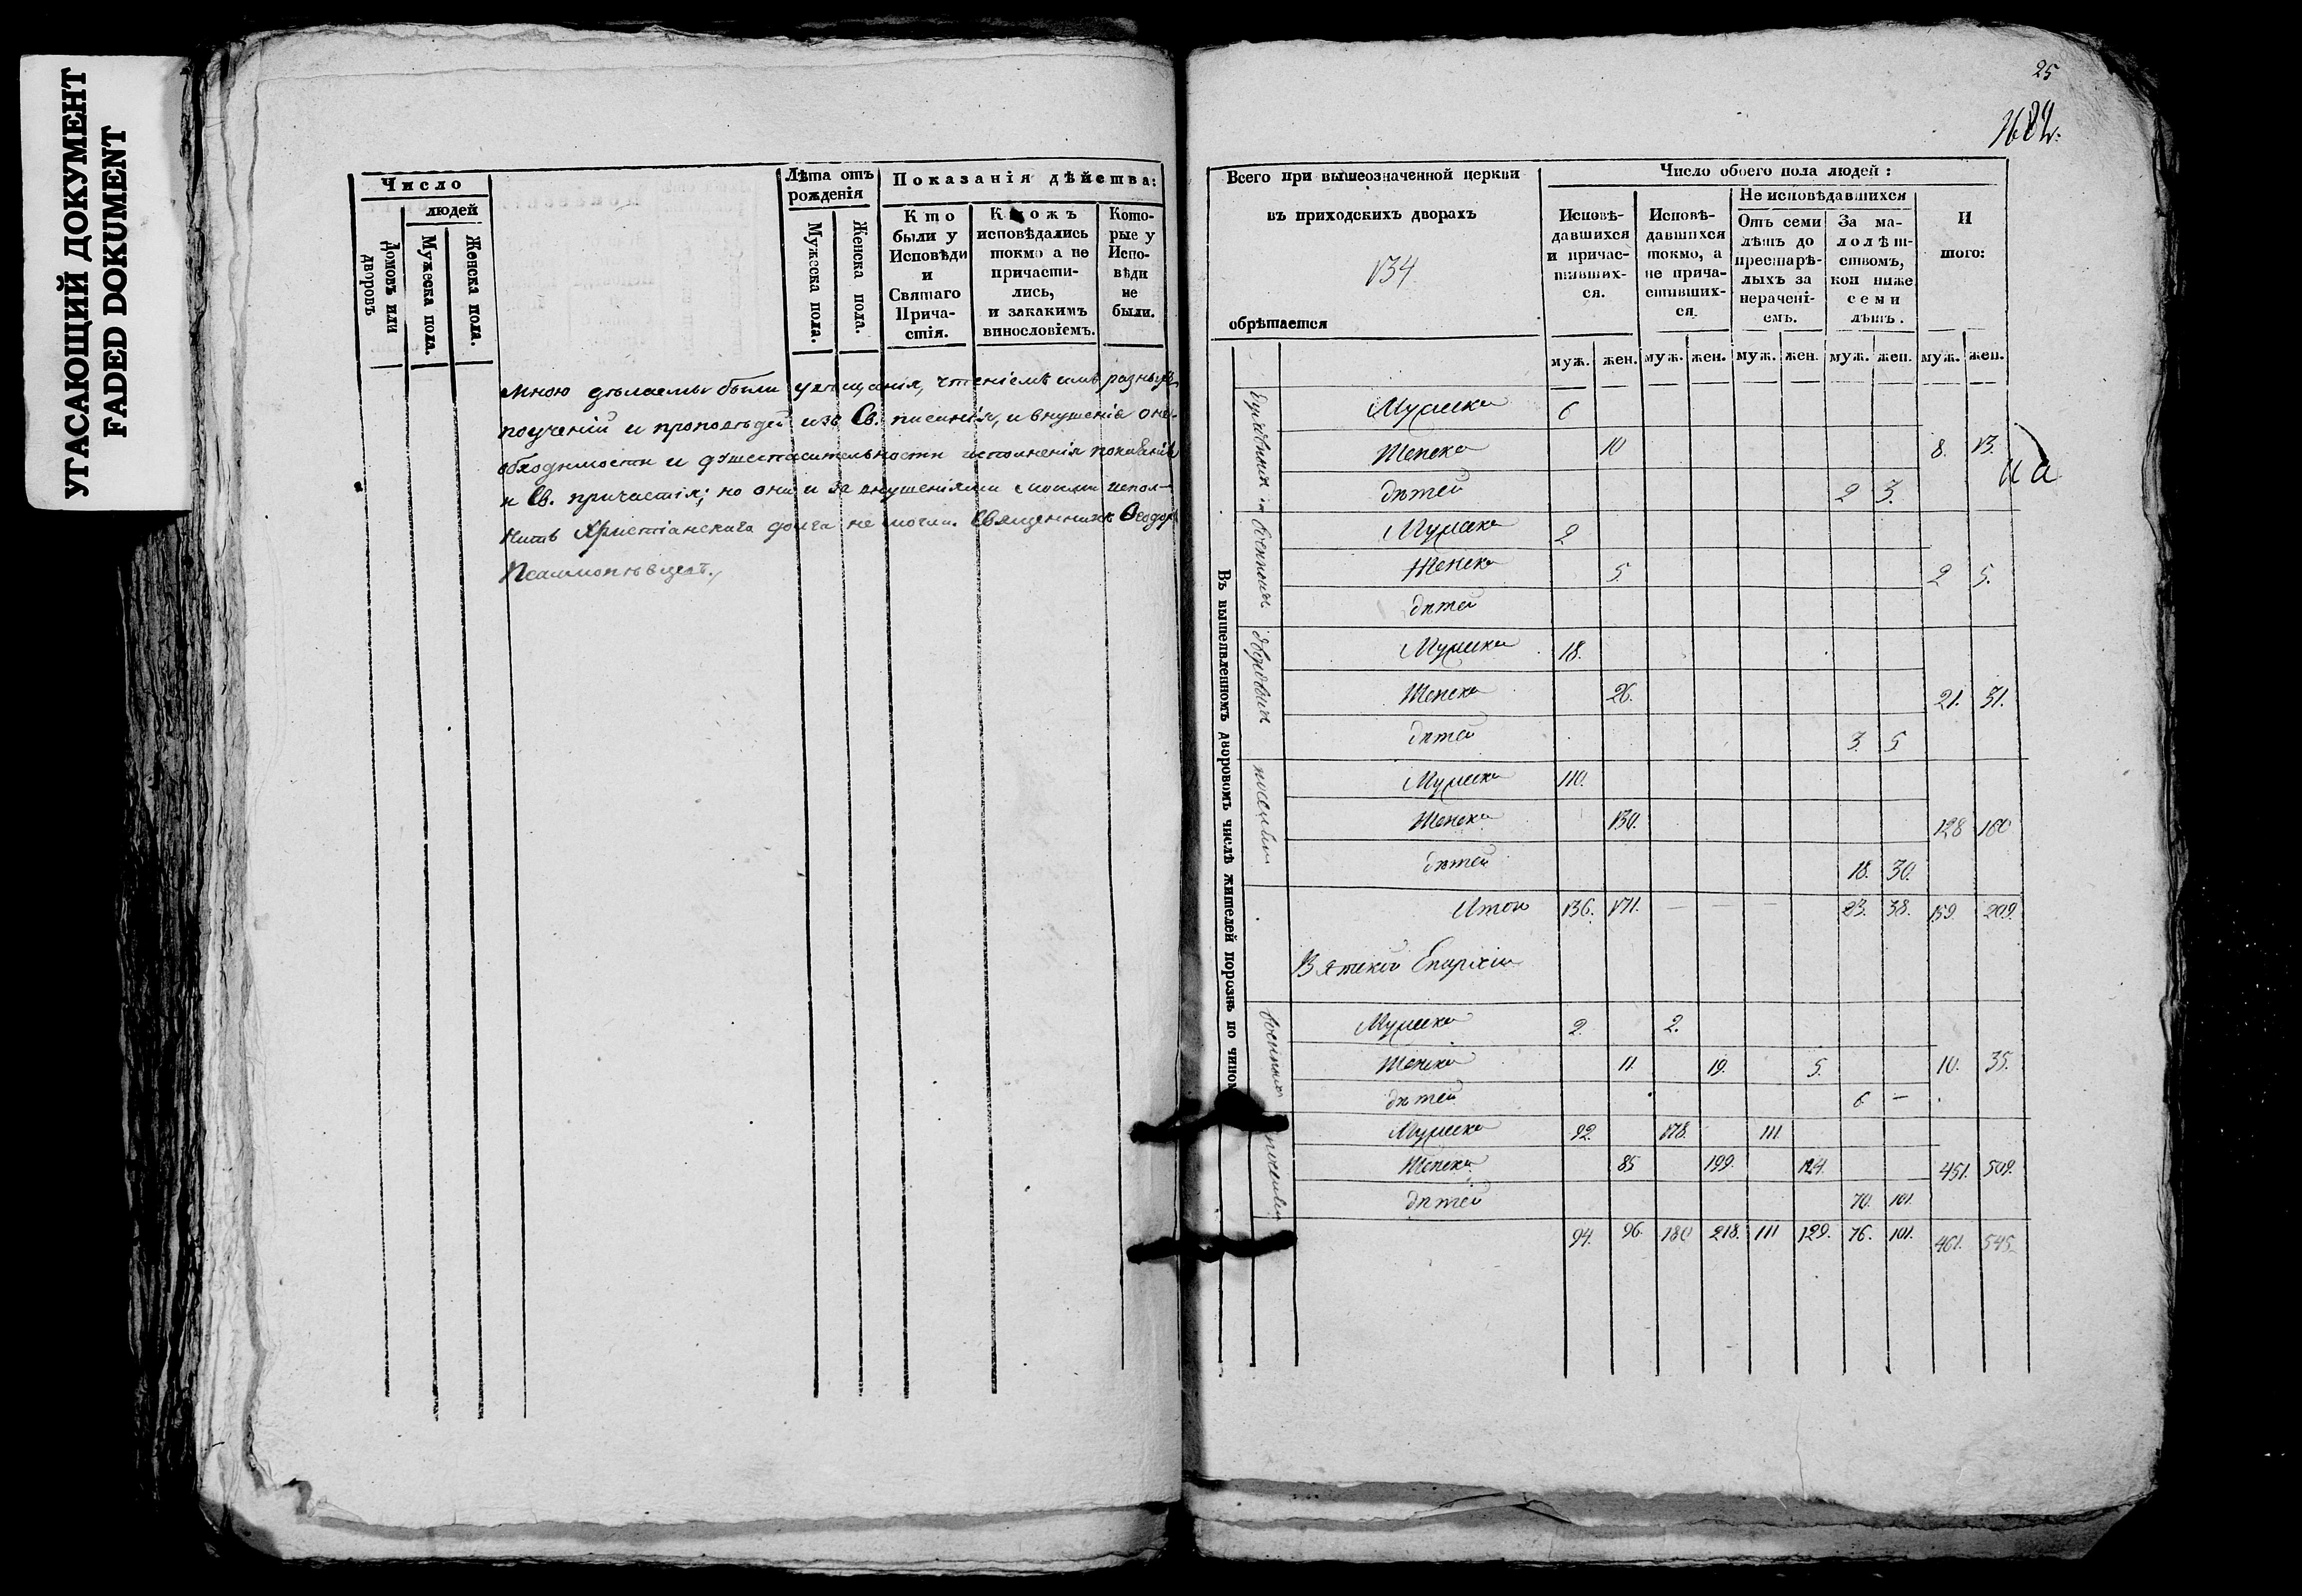 УГАСАЮЩИЙ ДОКУМЕНТ
FADED DOKUMENT
Число
людей
Домовъ или дворовъ
Мужеска пола.
Женска пола.
Лѣта отъ рожденія
Мужеска пола.
Женска пола.
Показанія дѣйства:
Кто были у Исповѣди и Святаго Причастія.
Ктожъ исповѣдались токмо а не причастились, и закакимъ винословіемъ.
Которые у Исповѣди не были.
мною дѣлаемы были увѣщанія, чтеніемъ имъ разныхъ
поученій и проповѣдей изъ Св. писанія, и внушеніе о не-
обходимости и душеспасительности исполненія покаянія
и Св. причастія; но они и за внушеніями моими испол-
нить Христіанскаго долга не могли. Священникъ Ѳеодоръ
Псаломпѣвцевъ.
25
1682.
Всего при вышеозначенной церкви
въ приходскихъ дворахъ
134
обрѣтается
Число обоего пола людей:
Исповѣдавшихся и причастившихся.
Исповѣдавшихся токмо, а не причастившихся.
Не исповѣдавшихся
Отъ семи лѣтъ до престарѣлыхъ за нераченіемъ.
За малолѣтствомъ, кои ниже семи лѣтъ.
Итого:
муж. жен. муж. жен. муж. жен. муж. жен. муж. жен.
Въ вышеявленномъ дворовомъ числѣ жителей порознь по чином
духовныхъ
Мужеска 6
Женска 10 8. 13.
дѣтей 2 3.
военныхъ
Мужеска 2
Женска 5. 2 5.
дѣтей
дворовыхъ
Мужеска 18.
Женска 26. 21. 31.
дѣтей 3. 5
поселян
Мужеска 110.
Женска 130. 128 160
дѣтей 18. 30.
Итого 136. 171. — — — 23. 38. 159. 209.
Вятской Епархіи
военныхъ
Мужеска 2. 2.
Женска 11. 19. 5. 10. 35.
дѣтей 6 —
поселян
Мужеска 92. 178. 111
Женска 85 199. 124. 451. 509.
дѣтей 70. 101.
94. 96. 180 218. 111 129. 76. 101. 461. 545.